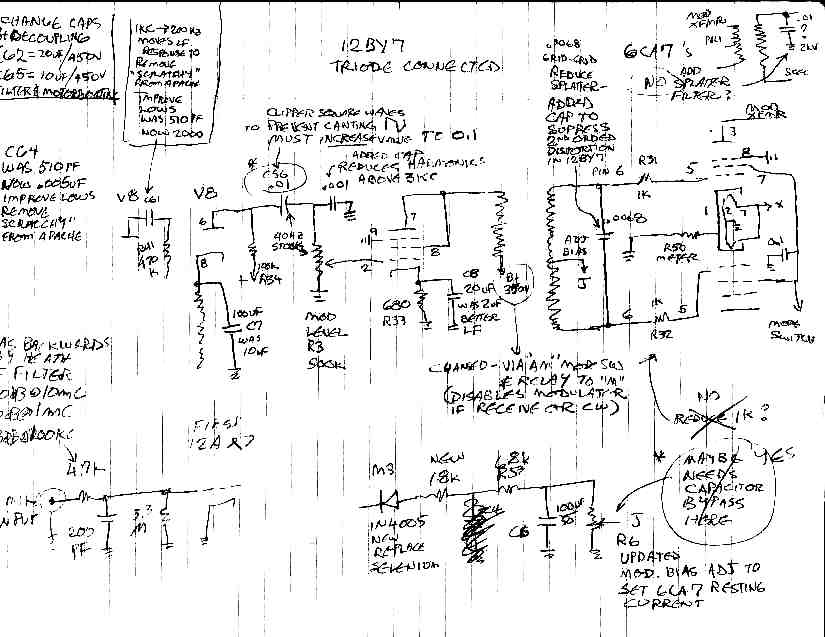 CHANGE CAPS
DECOUPLING
C62 = 20uF/450V
C65 = 10uF/450V
FILTER & MOTORBOATING
1KC → 200HZ
MOVES LF
RESPONSE TO
REMOVE
"SCRATCHY"
FROM APACHE
IMPROVE
LOWS
WAS 510PF
NOW 2000
12BY7
TRIODE CONNECTED
.0068
GRID-GRID
REDUCE
SPLATTER-
ADDED
CAP TO
SUPRESS
2ND ORDER
DISTORTION
IN 12BY7
6CA7's
MOD
XFMR
PRI
ADD
SPLATER
NO FILTER?
.01
?
2KV
SEC
C64
WAS 510PF
NOW .005UF
IMPROVE LOWS
REMOVE
SCRATCHY"
FROM APACHE
CLIPPER SQUARE WAVES
TO PREVENT CANTING
MUST INCREASE VALUE TO 0.1
* C56
.01
ADDED CAP
REDUCES HARMONICS
ABOVE 3KC
.001
V8
C61
R41
470
K
V8
6
8
100K
R34
40HZ
STOCK
100UF
C7
WAS
10UF
MOD
LEVEL
R3
500K
9
2
7
8
680
R33
C8
20UF
WAS 2UF
BETTER
LF
B+
300V
ADJ
BIAS
J
.0068
PIN 6
R31
1K
5
MOD
XFMR
3
8
7
1
R50
METER
.01
6
1K
R32
5
MODE
SWITCH
AS BACKWARDS
BY HEATH
FILTER
0DB@10MC
0DB@1MC
@100KC
FIRST
12AX7
CHANGED - VIA "AM" MODE SW
& RELAY TO "M"
(DISABLES MODULATOR
IF RECEIVE OR CW)
NO
REDUCE 1K?
* MAYBE YES
NEEDS
CAPACITOR
BYPASS
HERE
47K
200
PF
3.3
M
M3
IN4005
NEW
REPLACE
SELENIUM
NEW
18K
6.8K
R53
C6
100UF
50
J
R6
UPDATED
MOD. BIAS ADJ TO
SET 6CA7 RESTING
CURRENT